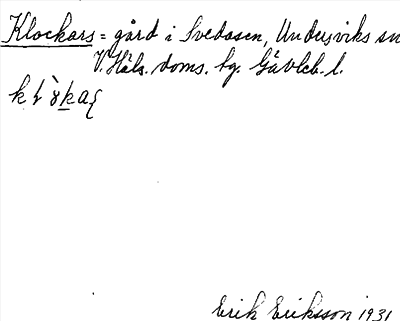 Klockars = gård i Svedåsen, Undersviks sn
V. Häls. doms. sg. Gävleb. l.
Erik Eriksson 1931